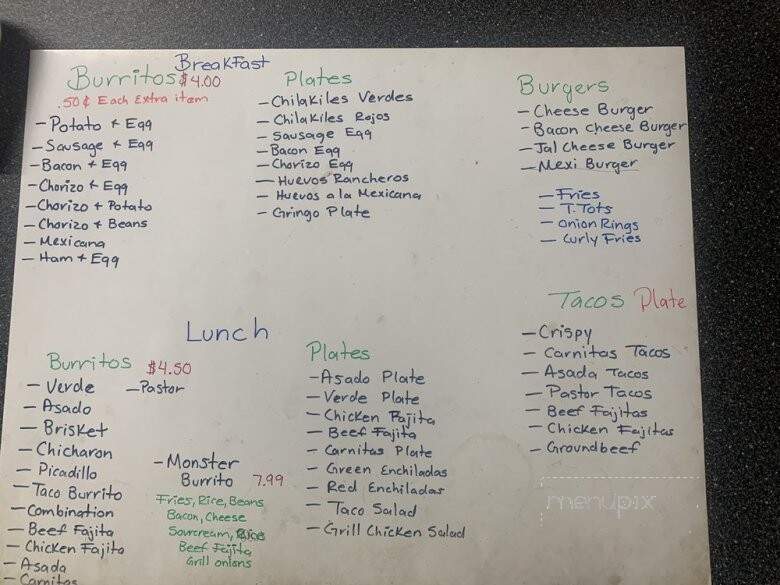 Breakfast
Burritos $4.00
.50¢ Each Extra item
- Potato + Egg
- Sausage + Egg
- Bacon + Egg
- Chorizo + Egg
- Chorizo + Potato
- Chorizo + Beans
- Mexicana
- Ham + Egg
Plates
- Chilakiles Verdes
- Chilakiles Rojos
- Sausage Egg
- Bacon Egg
- Chorizo Egg
- Huevos Rancheros
- Huevos a la Mexicana
- Gringo Plate
Burgers
- Cheese Burger
- Bacon Cheese Burger
- Jal Cheese Burger
- Mexi Burger
- Fries
- T.Tots
- Onion Rings
- Curly Fries
Lunch
Burritos $4.50
- Verde - Pastor
- Asado
- Brisket
- Chicharon
- Picadillo
- Taco Burrito
- Combination
- Beef Fajita
- Chicken Fajita
- Asada
- Carnitas
- Monster
Burrito 7.99
Fries, Rice, Beans
Bacon, Cheese
Sourcream,
Beef Fajita
Grill onions
Plates
- Asado Plate
- Verde Plate
- Chicken Fajita
- Beef Fajita
- Carnitas Plate
- Green Enchiladas
- Red Enchiladas
- Taco Salad
- Grill Chicken Salad
Tacos Plate
- Crispy
- Carnitas Tacos
- Asada Tacos
- Pastor Tacos
- Beef Fajitas
- Chicken Fajitas
- Groundbeef
menupix